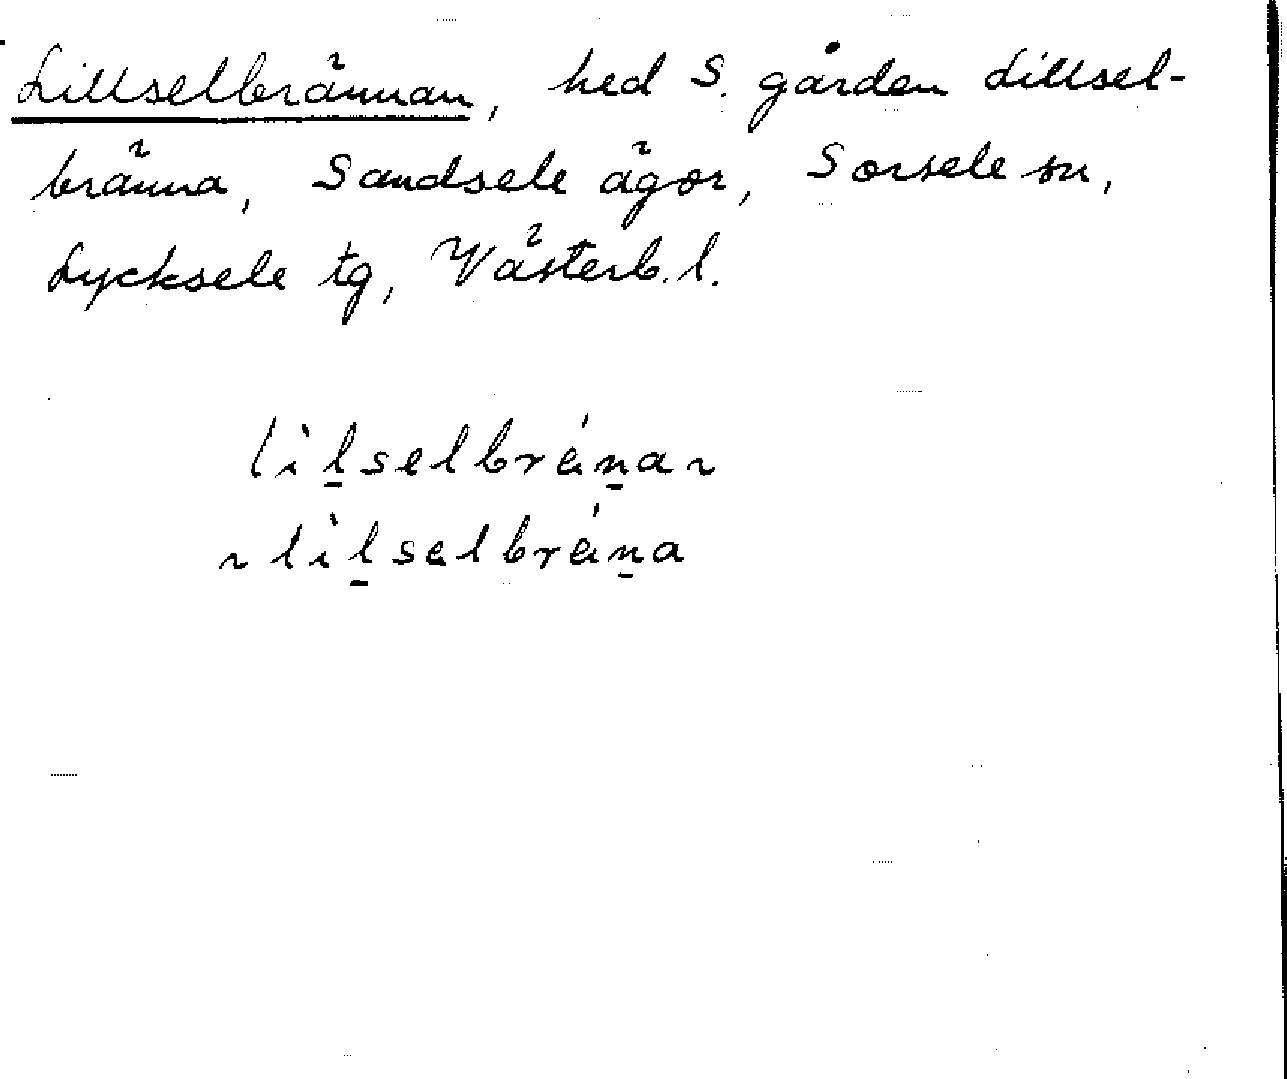 Lillselbrännan, hed S. gården Lillsel-
bränna, Sandsele ägor, Sorsele sn,
Lycksele tg, Västerb. l.
lìl̠selbrán̠a ~
~ lìl̠selbrán̠a